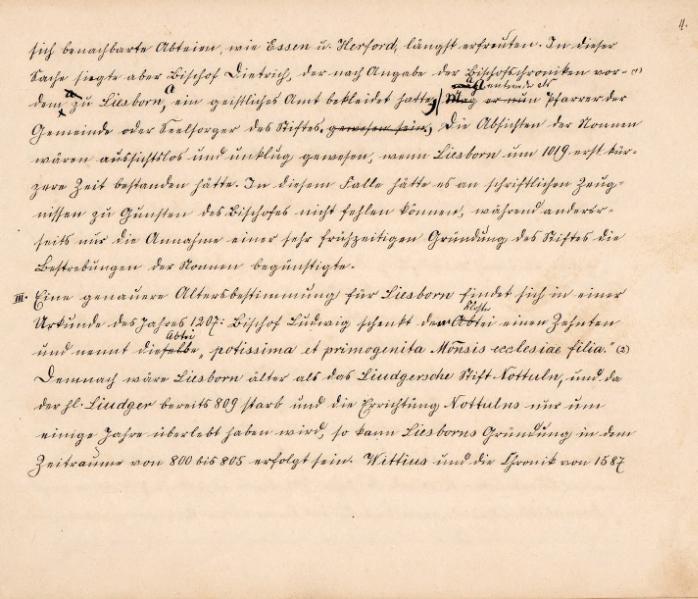 4.
sich benachbarte Abteien, wie Essen u. Herford, längst erfreuten. In dieser
Sache siegte aber Bischof Dietrich, der nach Angabe der Bischofschroniken vor- (1)
dem zu Liesborn, ein geistliches Amt bekleidet hatte, Mag er nun Pfarrer der
Gemeinde oder Seelsorger des Stiftes, gewesen sein, Die Absichten der Nonnen
wären aussichtslos und unklug gewesen, wenn Liesborn um 1019 erst kür-
zere Zeit bestanden hätte. In diesem Falle hätte es an schriftlichen Zeug-
nissen zu Gunsten des Bischofes nicht fehlen können, während anderer-
seits nur die Annahme einer sehr frühzeitigen Gründung des Stiftes die
Bestrebungen der Nonnen begünstigte.
III. Eine genauere Altersbestimmung für Liesborn findet sich in einer
Urkunde des Jahres 1207: Bischof Ludwig schenkt dem Kloster Abtei einen Zehnten
und nennt die Abtei selbe „potissima et primogenita Monsis ecclesiae filia.“ (2)
Demnach wäre Liesborn älter als das Liudgersche Stift Nottuln, und da
der hl. Liudger bereits 809 starb und die Errichtung Nottulns nur um
einige Jahre überlebt haben wird, so kann Liesborns Gründung in dem
Zeitraume von 800 bis 805 erfolgt sein. Wittius und die Chronik von 1587